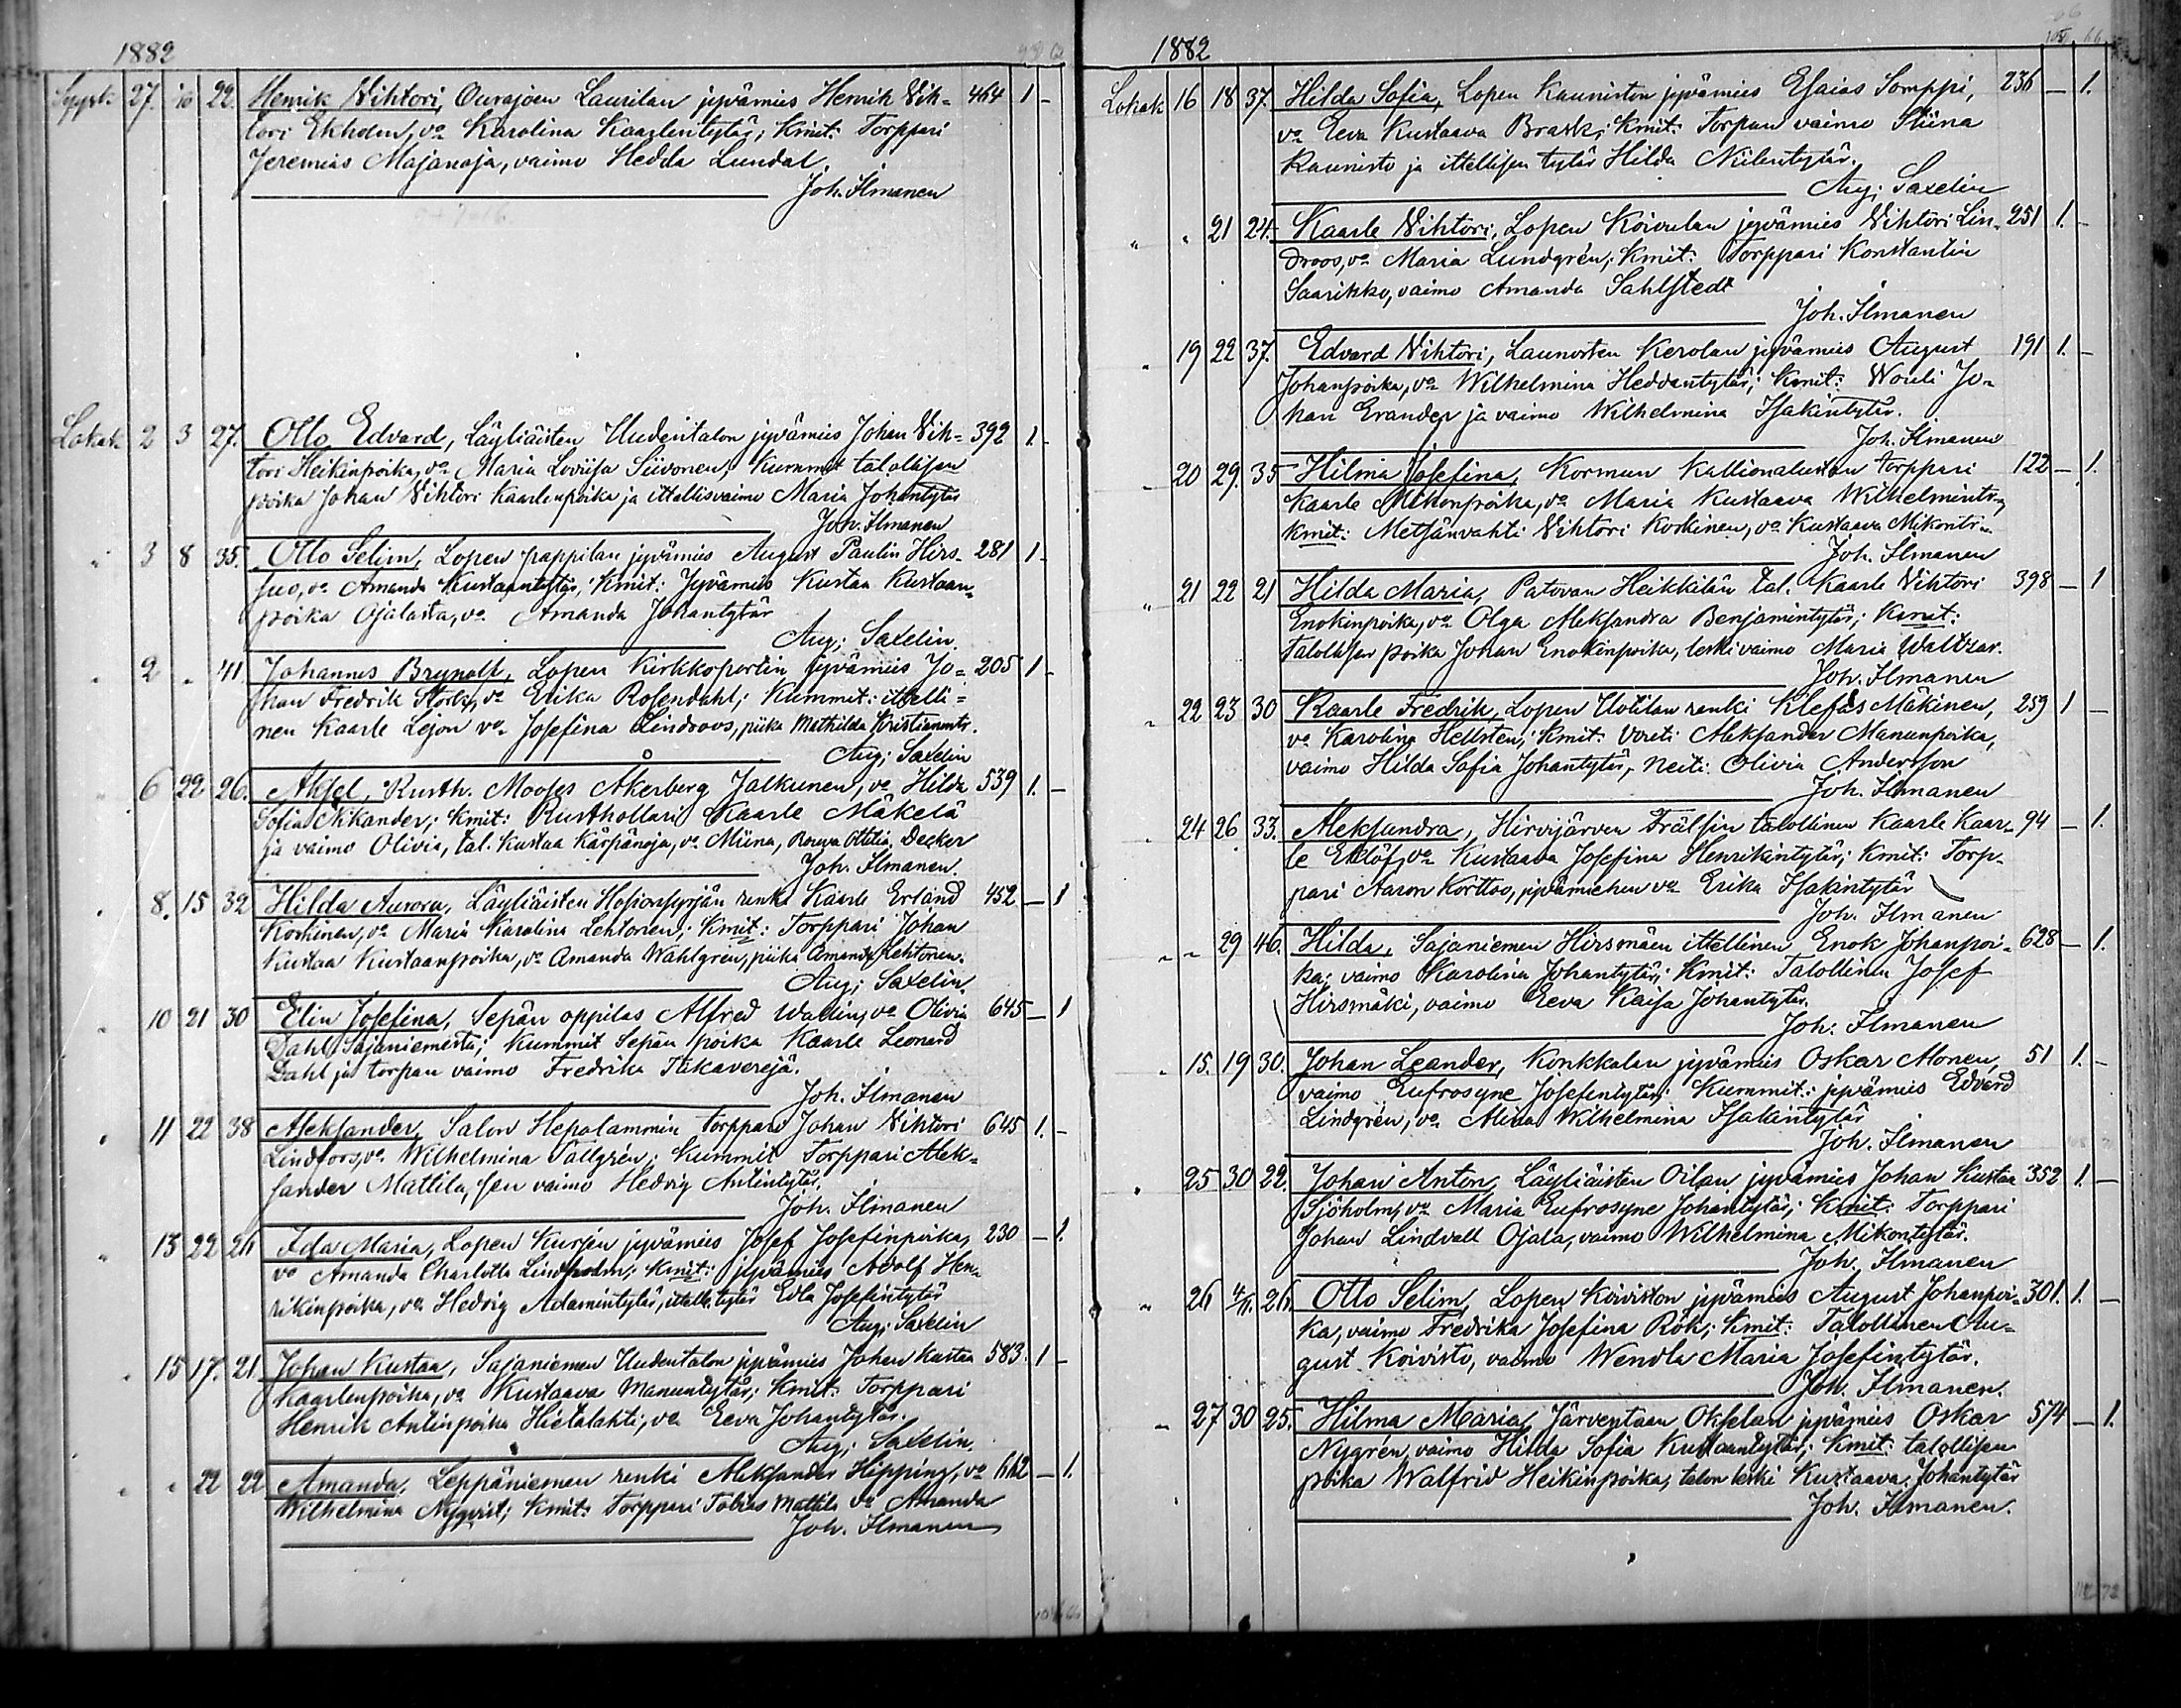 1882
Syysk. 27. 1/10 22. Henrik Wihtori, Ourajoen Laurilan jyvämies Henrik Wih= 464 1 -
tori Ekholm, vo Karolina Kaarlentytär; Kmit: Torppari
Jeremias Majanoja, vaimo Hedda Lundal.
Joh. Ilmanen
Lokak. 2 3 27. Otto Edvard, Läyliäisten Uudentalon jyvämies Johan Wih= 392 1 -
tori Heikinpoika, vo Maria Loviisa Siivonen; Kummit talollisen
poika Johan Wihtori Kaarlenpoika ja ittellisvaimo Maria Johantytär
Joh. Ilmanen
" 3 8 35. Otto Selim, Lopen pappilan jyvämies August Paulin Hirs- 281 1 -
suo, vo Amanda Kustaantytär; Kmit: Jyvämies Kustaa Kustaan=
poika Ojalasta, vo Amanda Johantytär
Aug; Saxelin.
" 2 " 41. Johannes Brynolf, Lopen Kirkkopertin jyvämies Jo- 205 1 -
han Fredrik Stork, vo Erika Rosendahl; Kummit: ittelli=
nen Kaarle Lejon vo Josefina Lindroos, piika Mathilda Kristianintr.
Aug; Saxelin
" 6 22 26. Aksel, Rusth. Mooses Åkerberg Jalkunen, vo Hilda 539 1. -
Sofia Nikander; Kmit: Rusthollari Kaarle Mäkelä
ja vaimo Olivia, tal. Kustaa Kärpänoja, vo Miina, Rouva Ottilia Decker
Joh. Ilmanen.
" 8. 15 32 Hilda Aurora, Läyliäisten renki Kaarle Erland 452 - 1
Koskinen, vo Maria Karolina Lehtonen; Kmit: Torppari Johan
Kustaa Kustaanpoika, vo Amanda Wahlgren, piika Amanda Lehtonen.
Aug; Saxelin.
" 10 21 30 Elin Josefina, Sepän oppilas Alfred Wallin, vo Olivia 645 - 1
Dahl Sajaniemestä; Kummit Sepän poika Kaarle Leonard
Dahl ja torpan vaimo Fredrika Takaverejä.
Joh. Ilmanen
" 11 22 38 Aleksander, Salon Hepolammin torppari Johan Wihtori 645 1. -
Lindfors, vo Wilhelmina Tallgrén; Kummit Torppari Alek=
sander Mattila, sen vaimo Hedvig Antintytär.
Joh. Ilmanen
" 13 22 26 Ida Maria, Lopen Kurjen jyvämies Josef Josefinpoika, 230 - 1.
vo Amanda Charlotta Lindholm; Kmit: jyvämies Adolf Hen=
rikinpoika, vo Hedvig Adamintytär, ittell. tytär Edla Josefintytär
Aug; Saxelin
" 15 17. 21. Johan Kustaa, Sajaniemen Uudentalon jyvämies Johan Kustaa 583. 1 -
Kaarlenpoika, vo Kustaava Manuntytär; Kmit: Torppari
Henrik Antinpoika Hietalahti, vo Eeva Johantytär.
Aug; Saxelin.
" " 22 22 Amanda, Leppäniemen renki Aleksander Hipping, vo 662 - 1.
Wilhelmina Nyqvist; Kmit: Torppari Tobias Mattila vo Amanda
Joh. Ilmanen
1882
Lokak 16 18 37. Hilda Sofia, Lopen Kauniston jyvämies Esaias Somppi, 236 - 1.
vo Eeva Kustaava Brask; Kmit: Torpan vaimo Stiina
Kaunisto ja ittellisen tytär Hilda Nilentytär.
Aug; Saxelin
" " 21 24. Kaarle Wihtori, Lopen Koivulan jyvämies Wihtori Lin- 251 1. -
droos, vo Maria Lundgrén; Kmit: Torppari Konstantin
Saarikko, vaimo Amanda Sahlstedt
Joh. Ilmanen
" 19 22 37. Edvard Wihtori, Launosten Kerolan jyvämies August 191 1. -
Johanpoika, vo Wilhelmina Heddantytär; Kmit: Wouti Jo=
han Erander ja vaimo Wilhelmina Isakintytär.
Joh. Ilmanen
" 20 29. 35 Hilma Josefina, Kormun Kallionalustan torppari 122 - 1.
Kaarle Mikonpoika, vo Maria Kustaava Wilhelmintr;
Kmit: Metsänvahti Wihtori Koskinen, vo Kustaava Mikontr.
Joh. Ilmanen
" 21 22 21 Hilda Maria, Patovan Heikkilän tal. Kaarle Wihtori 398 - 1
Enokinpoika, vo Olga Aleksandra Benjamintytär; Kmit:
Talollisen poika Johan Enokinpoika, leskivaimo Maria Waltzar.
Joh. Ilmanen
" 22 23 30 Kaarle Fredrik, Lopen Uotilan renki Klefas Mäkinen, 259 1 -
vo Karolina Hellsten; Kmit: Vouti Aleksander Manunpoika,
vaimo Hilda Sofia Johantytär, Neiti Olivia Andersson
Joh. Ilmanen
" 24 26 33. Aleksandra, Hirvijärven Frälsin talollinen Kaarle Kaar- 94 - 1.
le Eklöf, vo Kustaava Josefina Henrikintytär; Kmit: Torp-
pari Aaron Korttoo, jyvämiehen vo Erika Isakintytär
Joh. Ilmanen
" " 29 46. Hilda, Sajaniemen Hirsmäen ittellinen Enok Johanpoi- 628 - 1.
ka; vaimo Karolina Johantytär; Kmit: Talollinen Josef
Hirsmäki, vaimo Eeva Kaisa Johantytär.
Joh. Ilmanen
" 15. 19 30. Johan Leander, Konkkalan jyvämies Oskar Monen, 51 1. -
vaimo Eufrosyne Josefintytär; Kummit: jyvämies Edvard
Lindgrén, vo Alina Wilhelmina Isakintytär
Joh. Ilmanen
" 25 30 22. Johan Anton, Läyliäisten Oilan jyvämies Johan Kustaa 352 1. -
Sjöholm, vo Maria Eufrosyne Johantytär; Kmit: Torppari
Johan Lindvall Ojala, vaimo Wilhelmina Mikontytär.
Joh. Ilmanen
" 26 4/11. 26. Otto Selim, Lopen Koiviston jyvämies August Johanpoi- 301. 1. -
ka, vaimo Fredrika Josefina Rök; Kmit: Talollinen Au=
gust Koivisto, vaimo Wendla Maria Josefintytär.
Joh. Ilmanen.
" 27 30 25. Hilma Maria, Järventaan Okselan jyvämies Oskar 574 - 1.
Nygrén, vaimo Hilda Sofia Kustaantytär; Kmit: talollisen
poika Walfrid Heikinpoika, talon leski Kustaava Johantytär
Joh. Ilmanen.